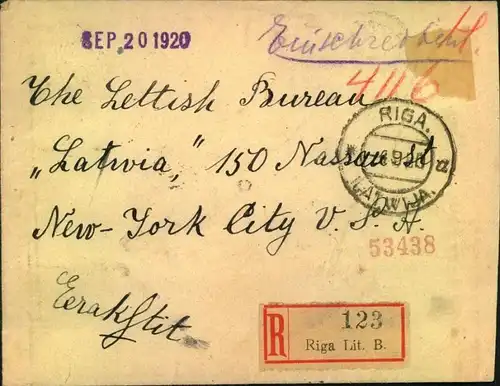 SEP. 20 1920
Einschreiben
4116
The Lettish Bureau
„Latwia," 150 Nassau St
New-York City U. S. A.
RIGA.
LATWIJA.
53438
Eerakstit
R 123
Riga Lit. B.